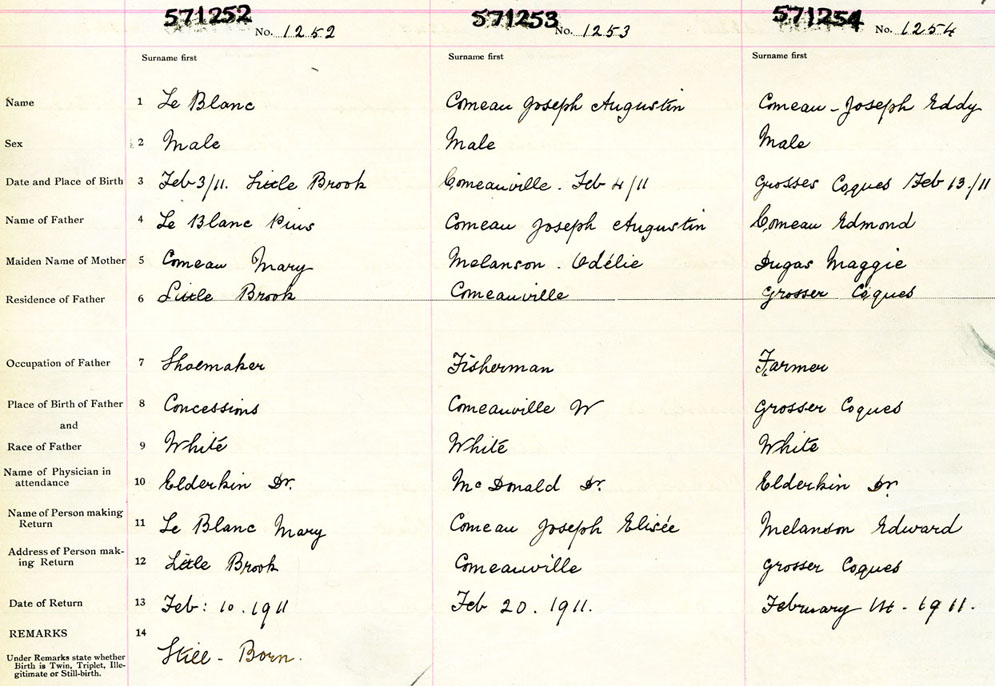 571252 571253 571254
No. 1252 No. 1253 No. 1254
Surname first Surname first Surname first
Name 1 Le Blanc Comeau Joseph Augustin Comeau - Joseph Eddy
Sex 2 Male Male Male
Date and Place of Birth 3 Feb 3/11. Little Brook Comeauville. Feb 4/11 Grosses Coques Feb 13/11
Name of Father 4 Le Blanc Pius Comeau Joseph Augustin Comeau Edmond
Maiden Name of Mother 5 Comeau Mary Melanson. Odélie Dugas Maggie
Residence of Father 6 Little Brook Comeauville Grosser Coques
Occupation of Father 7 Shoemaker Fisherman Farmer
Place of Birth of Father 8 Concessions Comeauville W Grosser Coques
and
Race of Father 9 White White White
Name of Physician in
attendance 10 Elderkin Dr. McDonald Dr. Elderkin Dr
Name of Person making
Return 11 Le Blanc Mary Comeau Joseph Elisée Melanson Edward
Address of Person mak-
ing Return 12 Little Brook Comeauville Grosser Coques
Date of Return 13 Feb: 10. 1911 Feb 20. 1911. February 1st - 1911.
REMARKS 14
Under Remarks state whether
Birth is Twin, Triplet, Ille-
gitimate or Still-birth.
Still - Born.